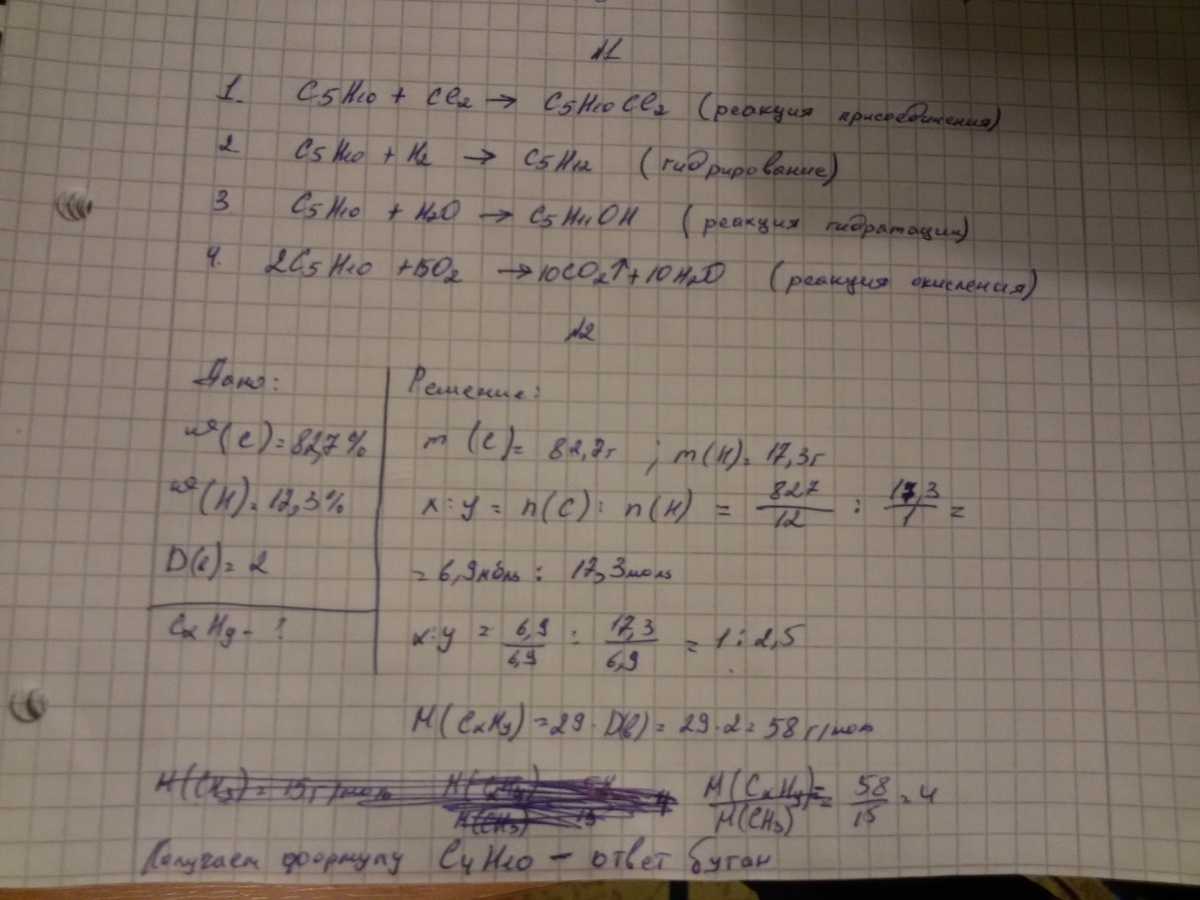 №1
1. C5H10 + Cl2 → C5H10Cl2 (реакция присоединения)
2 C5H10 + H2 → C5H12 (гидрирование)
3 C5H10 + H2O → C5H11OH (реакция гидратации)
4. 2C5H10 + 15O2 → 10CO2↑ + 10H2O (реакция окисления)
№2
Дано: Решение:
w(C) = 82,7% m(C) = 82,7г ; m(H) = 17,3г
w(H) = 17,3% x : y = n(C) : n(H) = 827/12 : 17,3/1 =
D(в) = 2 = 6,9моль : 17,3моль
CxHy - ? x:y = 6,9/6,9 : 17,3/6,9 = 1 : 2,5
M(CxHy) = 29 · D(в) = 29 · 2 = 58 г/моль
M(CH3) = 15г/моль M(CxHy)/M(CH3) 58/15 4 M(CxHy)/M(CH3) = 58/15 = 4
Получаем формулу C4H10 – ответ бутан